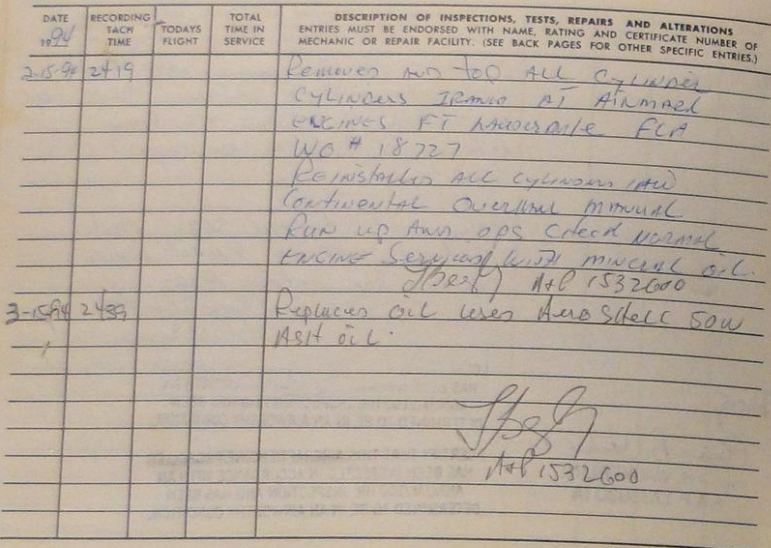 DATE
1994
RECORDING
TACH
TIME
TODAYS
FLIGHT
TOTAL
TIME IN
SERVICE
DESCRIPTION OF INSPECTIONS, TESTS, REPAIRS AND ALTERATIONS
ENTRIES MUST BE ENDORSED WITH NAME, RATING AND CERTIFICATE NUMBER OF
MECHANIC OR REPAIR FACILITY. (SEE BACK PAGES FOR OTHER SPECIFIC ENTRIES.)
2-15-94 2419 Removed and top ALL Cylinder
Cylinders IRAN'D AT Airmark
ENGINES FT Lauderdale FLA
WO # 18727
Reinstalled ALL Cylinders IAW
Continental Overhaul manual
Run up And ops Check normal
ENGINE Serviced with mineral oil.
A+P 1532600
3-15-94 2439 Replaced oil used AeroShell 50W
ASH oil.
A+P 1532600